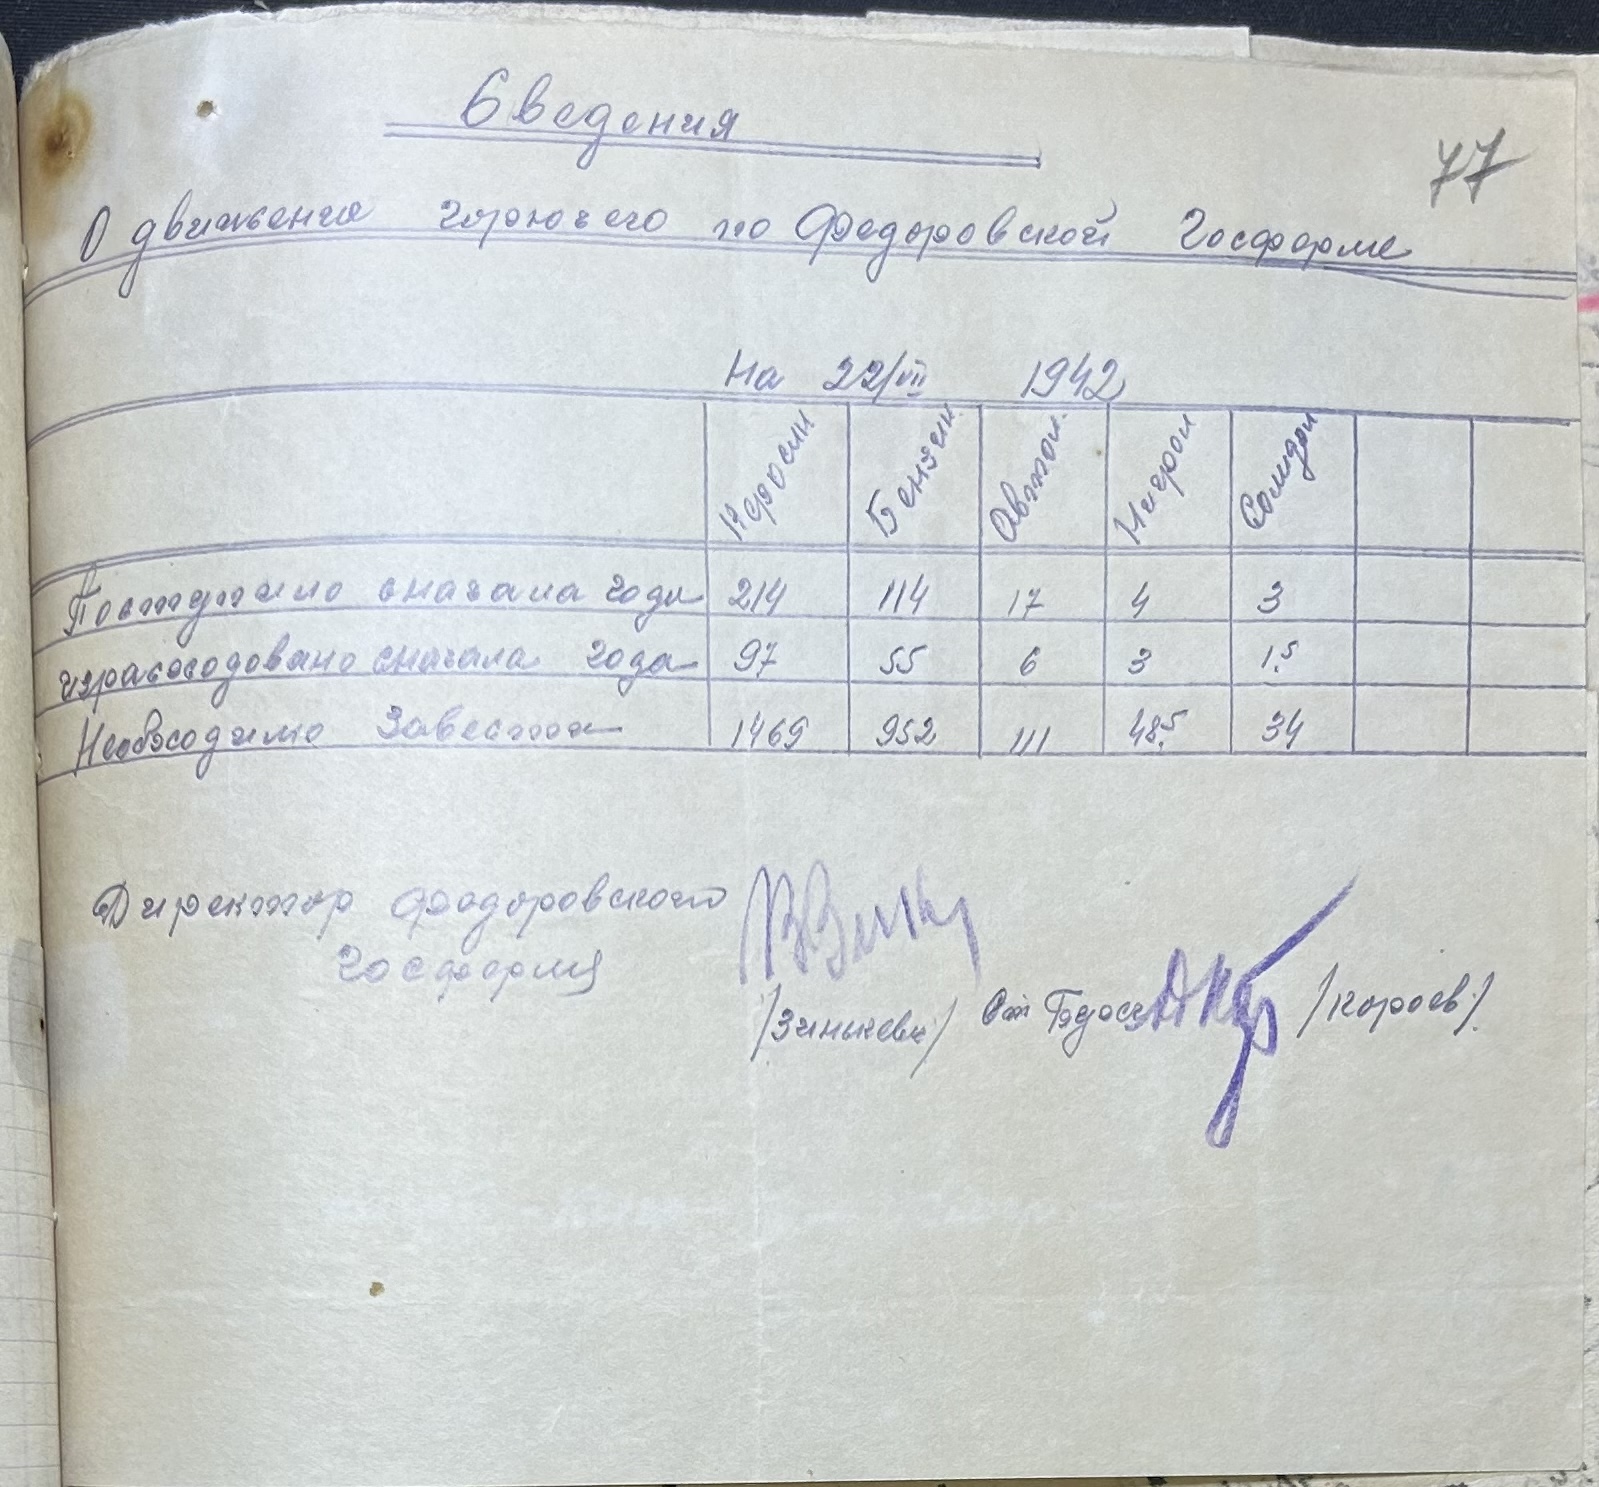 Сведения
77
О движении горючего по Федоровской Госферме
На 22/VII 1942
Керосин Бензин Автол. Нигрол Солидол
Поступило сначала года 214 114 17 4 3
израсходовано сначала года 97 55 6 3 1,5
Необходимо Завести 1469 952 111 48,5 34
Директор Федоровского
Госфермы
/Зинькевич/ /Короев/